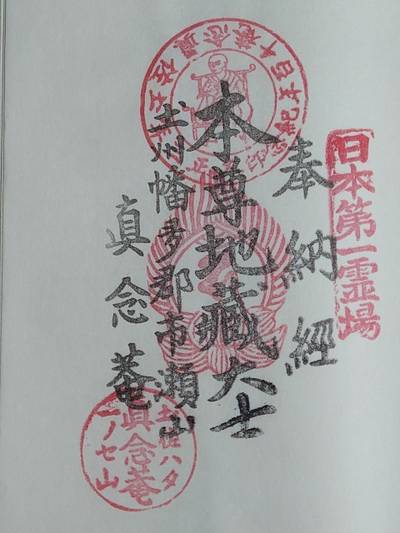 日本第一霊場
奉納經
本尊地藏大士
土州幡多郡市瀬山
真念菴
土佐ハタ
真念菴
一ノセ山